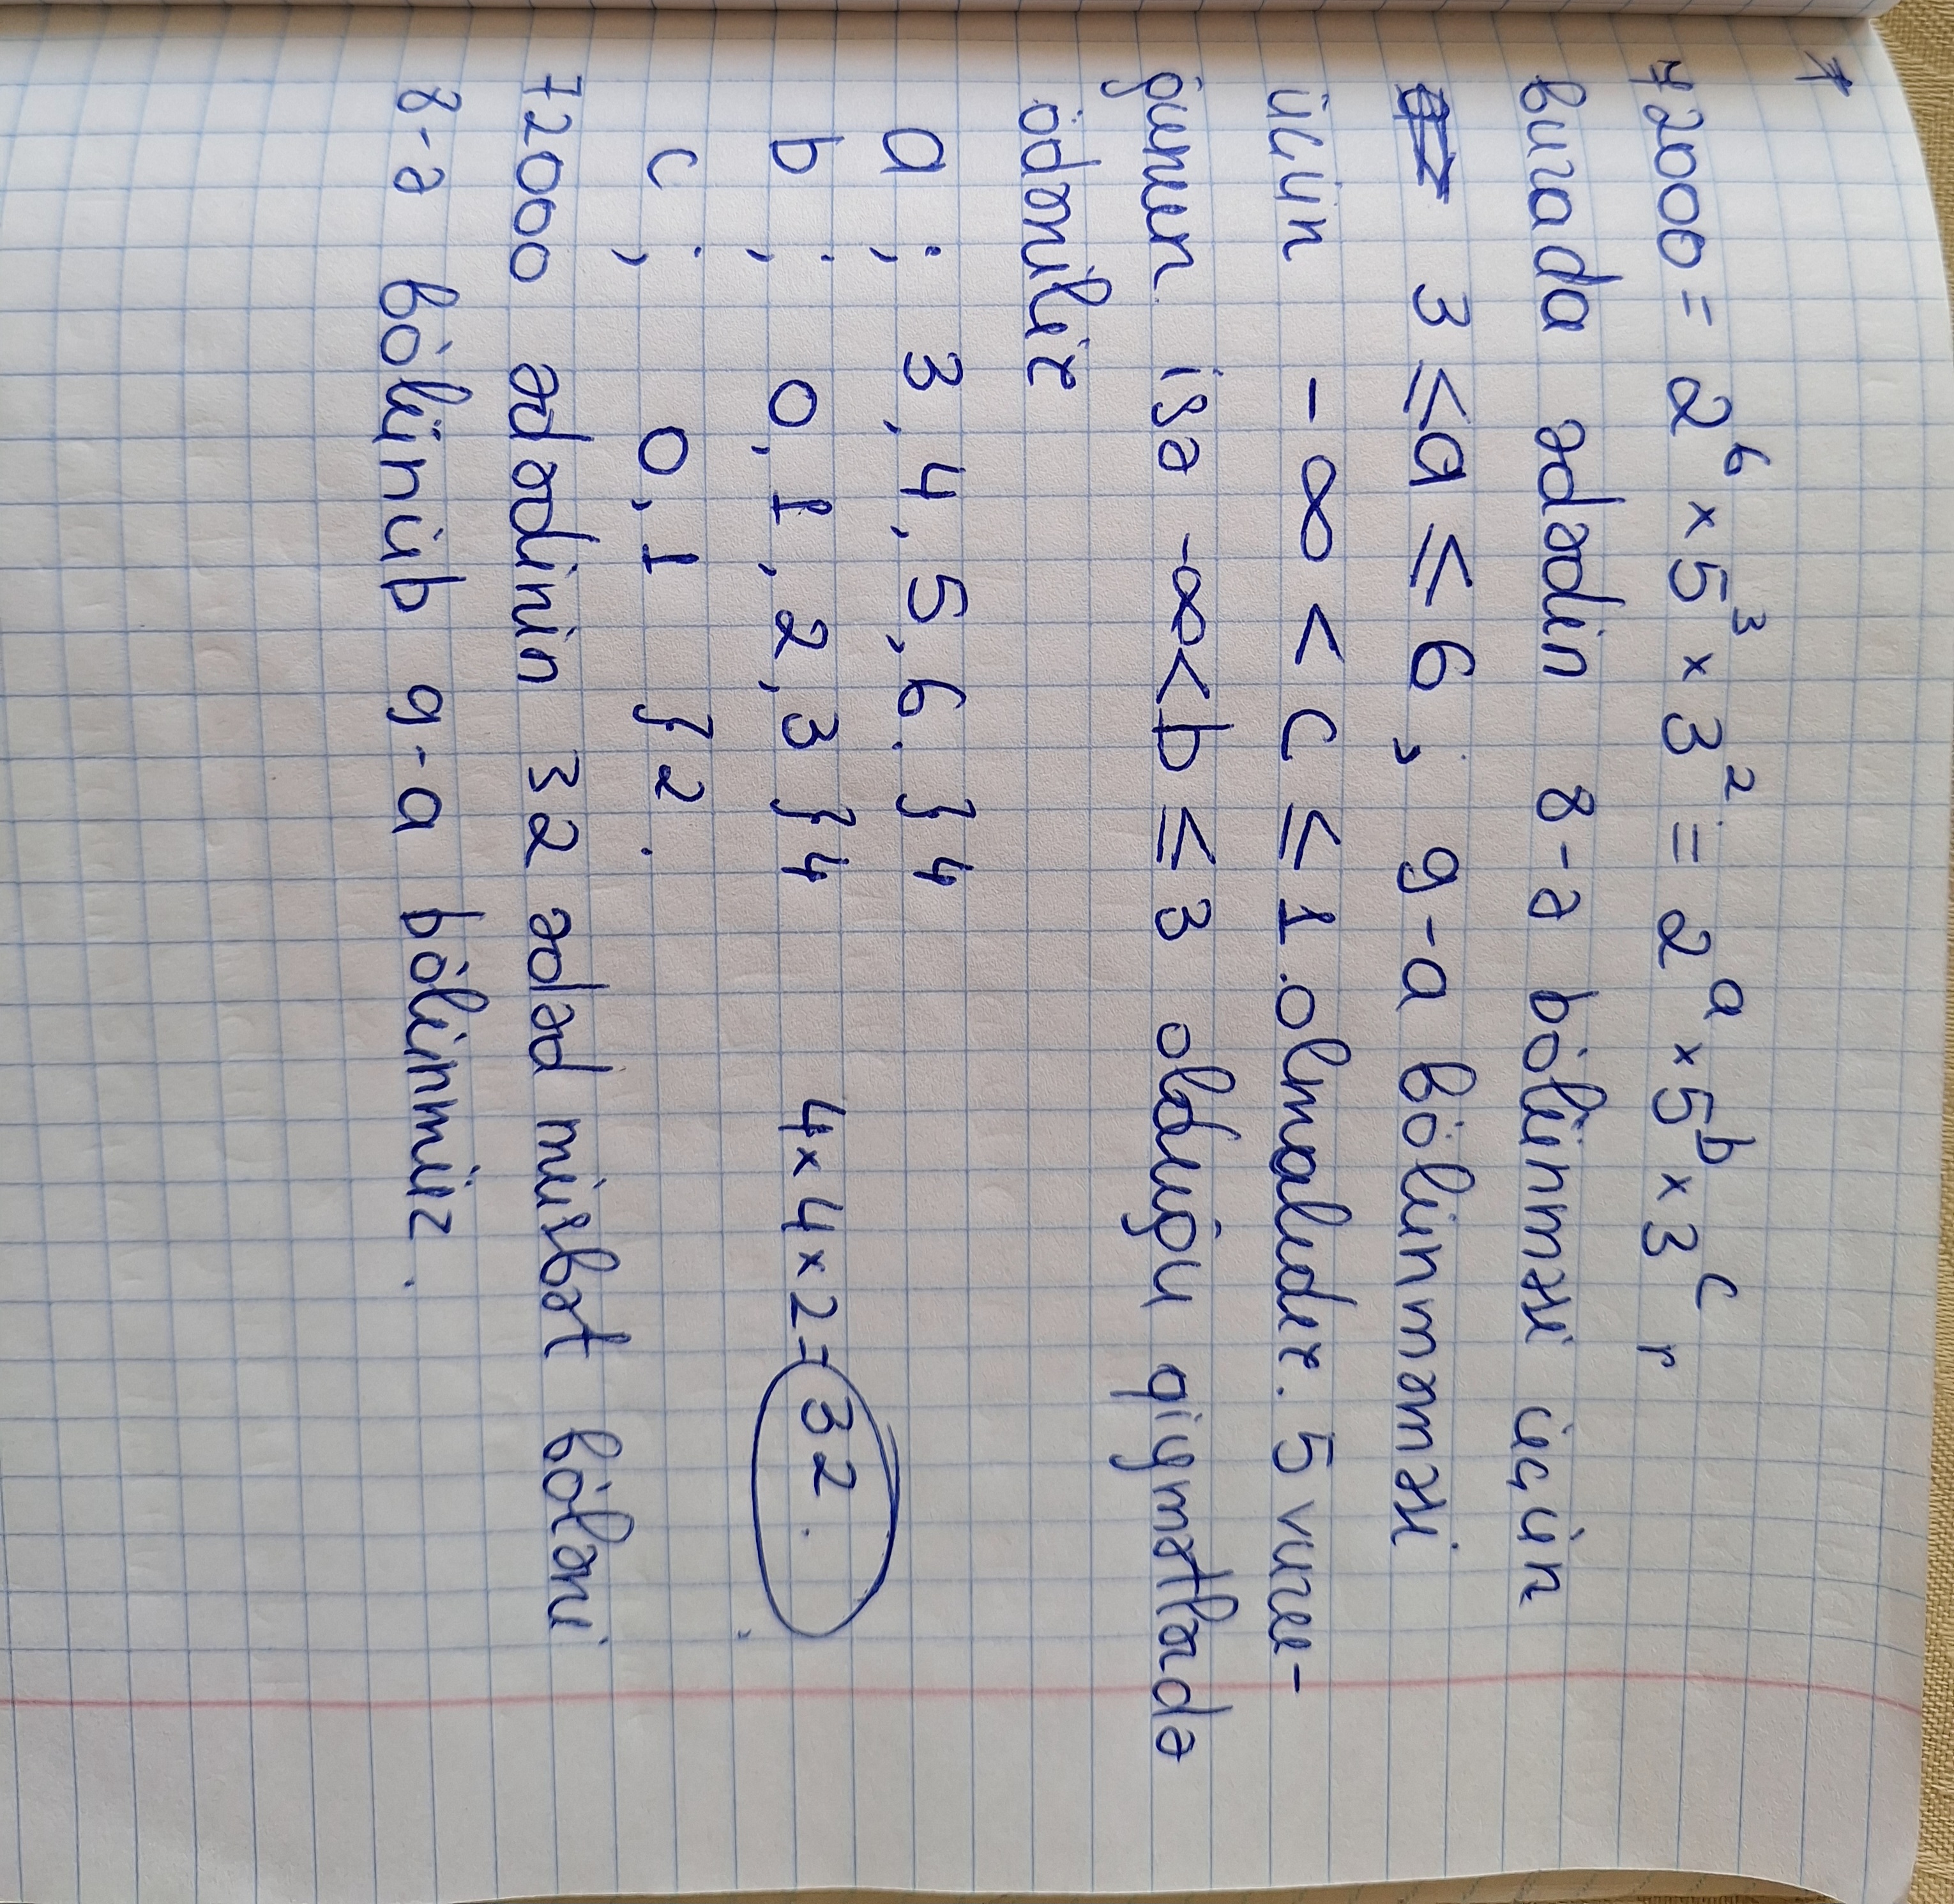 1
72000 = 2⁶ × 5³ × 3² = 2ᵃ × 5ᵇ × 3ᶜ,
burada ədədin 8-ə bölünməsi üçün
3 ≤ a ≤ 6 ; 9-a bölünməməsi
üçün -∞ < c ≤ 1 olmalıdır. 5 vuru-
ğunun isə -∞ < b ≤ 3 olduğu qiymətlərdə
ödənilir
a ; 3, 4, 5, 6. } 4
b ; 0, 1, 2, 3 } 4 4 × 4 × 2 = 32.
c ; 0, 1 } 2.
72000 ədədinin 32 ədəd müsbət böləni
8-ə bölünüb 9-a bölünmür.